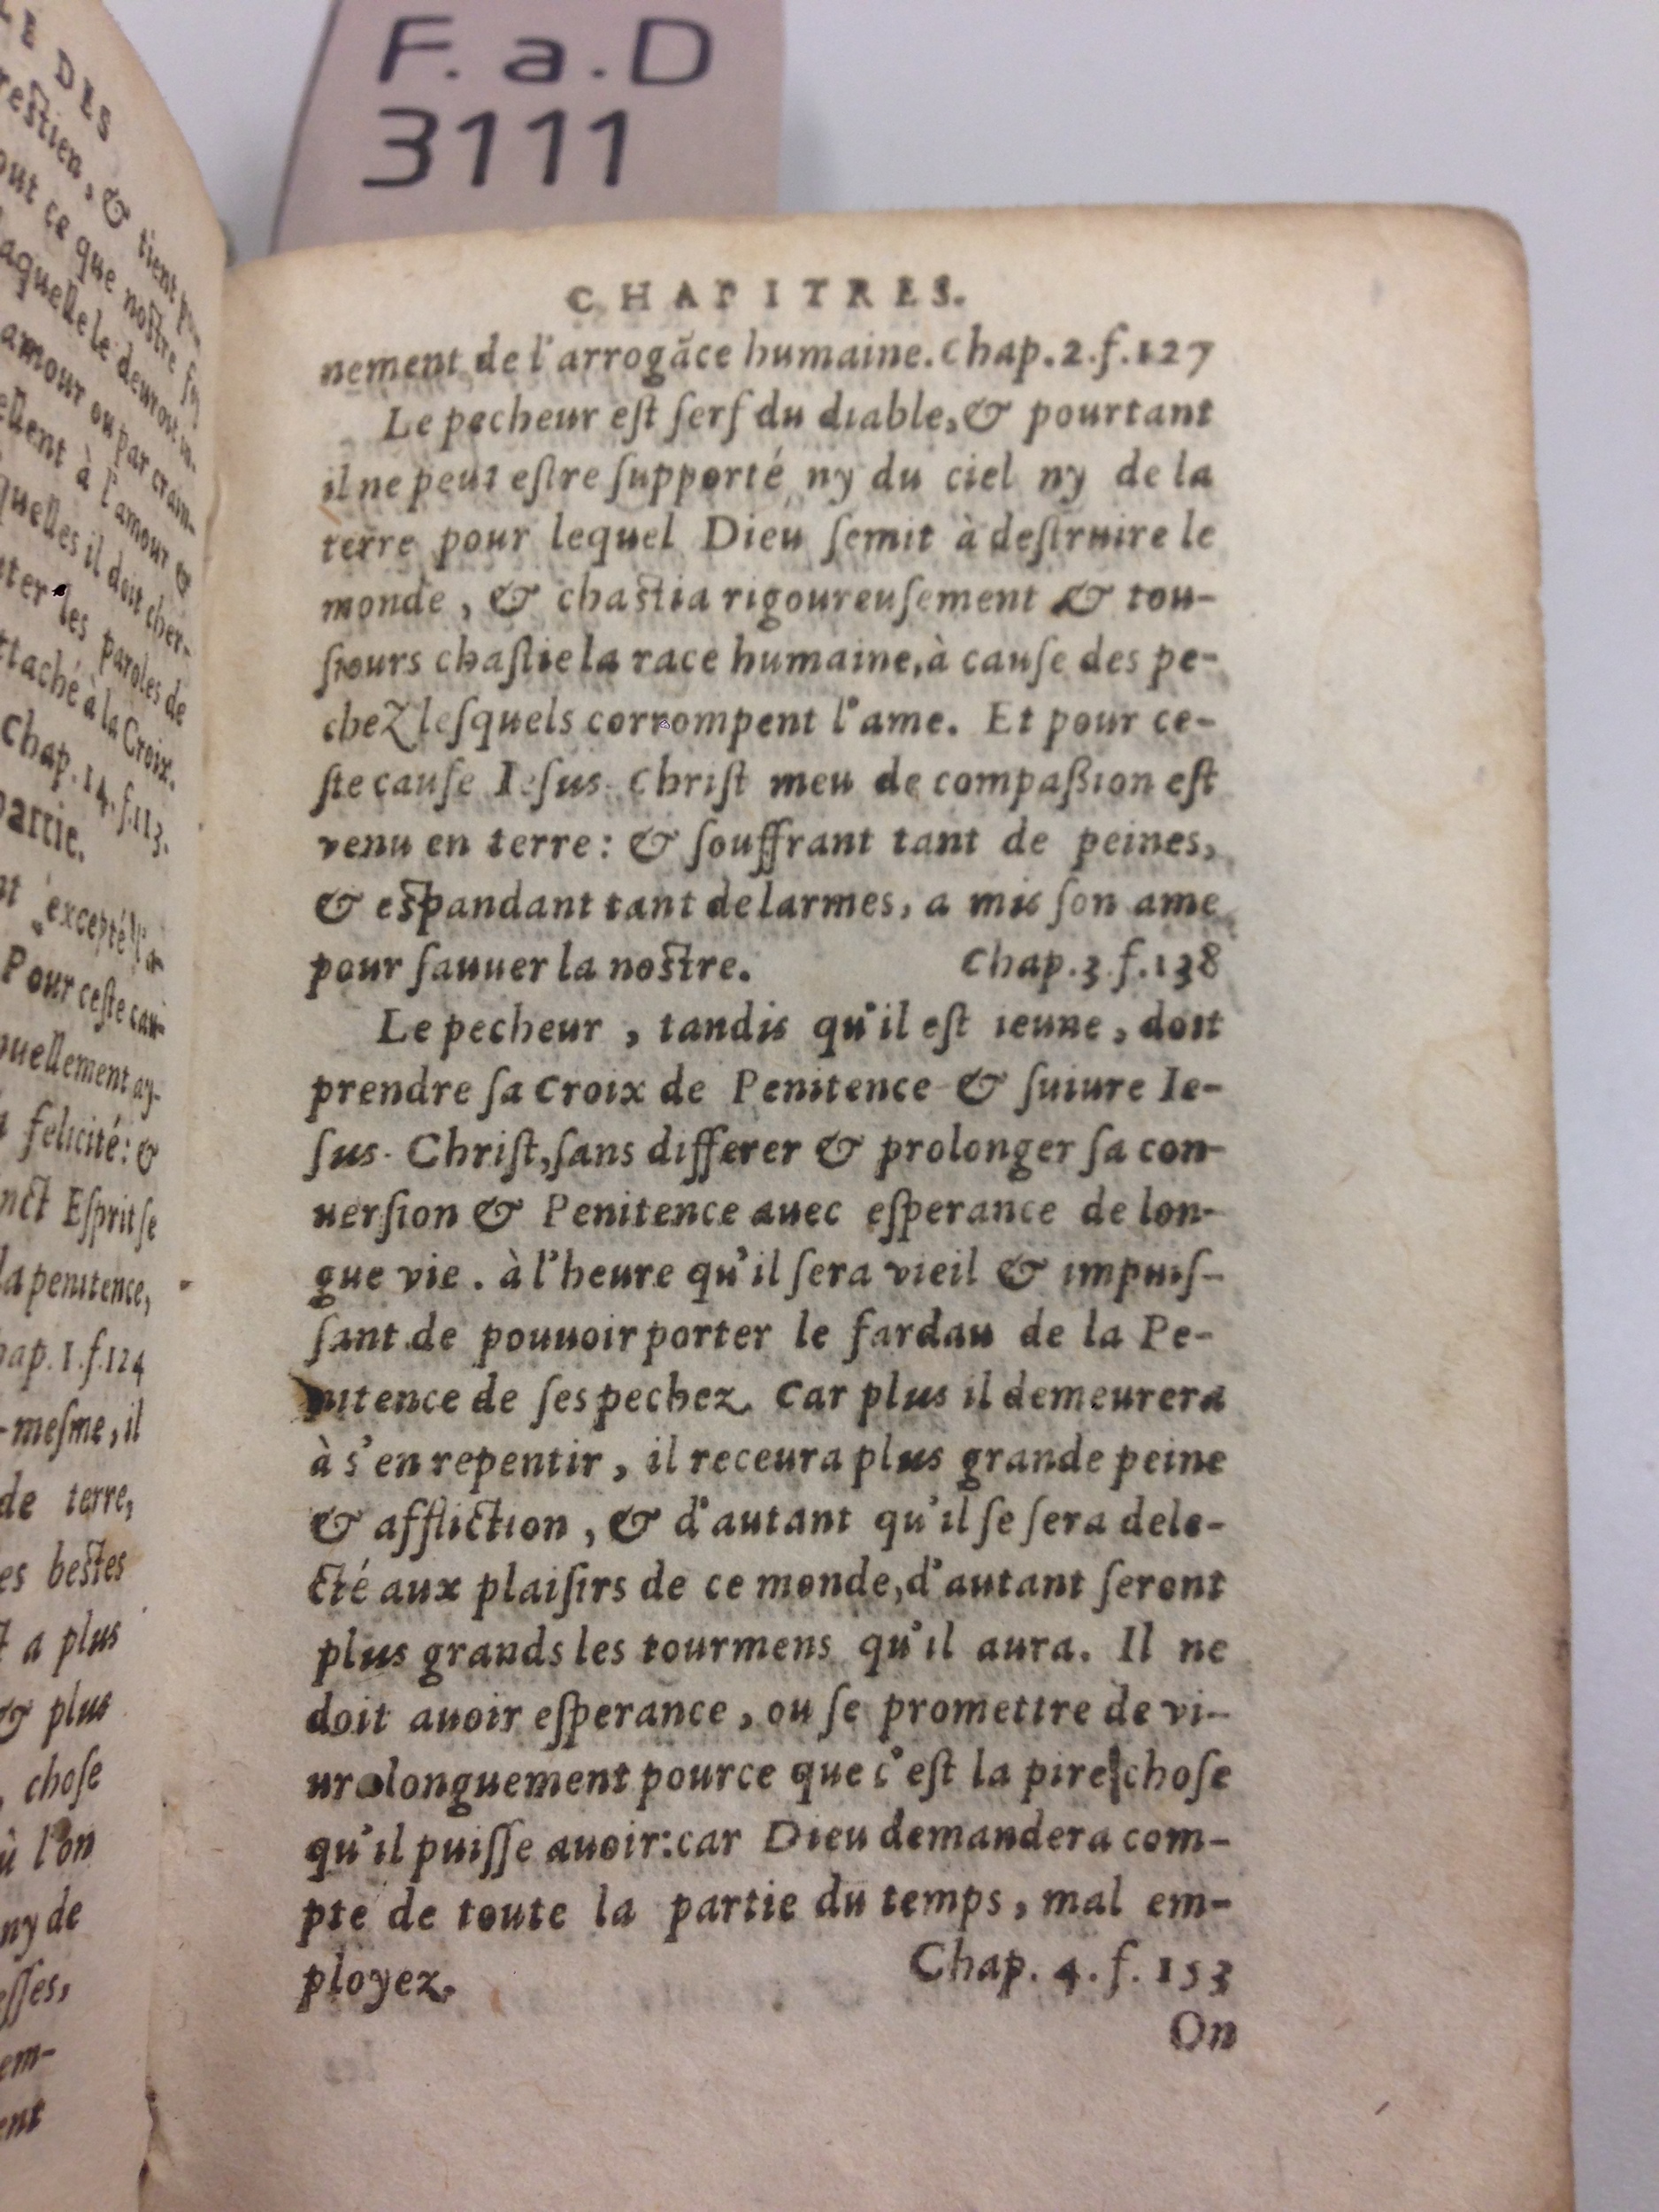 F. a. D
3111
LE DES
restien, & tient
out ce que nostre foy
aquelle le deuroit in-
amour ou par crain-
ellent à l'amour &
quelles il doit cher-
ter les paroles de
ttaché à la Croix.
Chap. 14. f. 113.
partie.
excepté l'a-
Pour ceste cau-
uellement ay-
felicité: &
nct Esprit se
la penitence,
hap. 1. f. 124
-mesme, il
de terre,
es bestes
a plus
& plus
, chose
ù l'on
ny de
esses,
em-
ent
CHAPITRES.
nement de l'arrogãce humaine. Chap. 2. f. 127
Le pecheur eſt ſerf du diable, & pourtant
il ne peut eſtre ſupporté ny du ciel ny de la
terre pour lequel Dieu ſemit à deſtruire le
monde, & chaſtia rigoureuſement & tou-
ſiours chaſtie la race humaine, à cauſe des pe-
chez leſquels corrompent l'ame. Et pour ce-
ſte cauſe Ieſus-Chriſt meu de compaßion eſt
venu en terre: & ſouffrant tant de peines,
& eſpandant tant de larmes, a mis ſon ame
pour ſauuer la noſtre. Chap. 3. f. 138
Le pecheur, tandis qu'il eſt ieune, doit
prendre ſa Croix de Penitence & ſuiure Ie-
ſus-Chriſt, ſans differer & prolonger ſa con-
uerſion & Penitence auec eſperance de lon-
gue vie. à l'heure qu'il ſera vieil & impuiſ-
ſant de pouuoir porter le fardau de la Pe-
nitence de ſes pechez. Car plus il demeurera
à s'en repentir, il receura plus grande peine
& affliction, & d'autant qu'il ſe ſera dele-
cté aux plaiſirs de ce monde, d'autant ſeront
plus grands les tourmens qu'il aura. Il ne
doit auoir eſperance, ou ſe promettre de vi-
ure longuement pource que c'eſt la pire choſe
qu'il puiſſe auoir: car Dieu demandera com-
pte de toute la partie du temps, mal em-
ployez. Chap. 4. f. 153
On